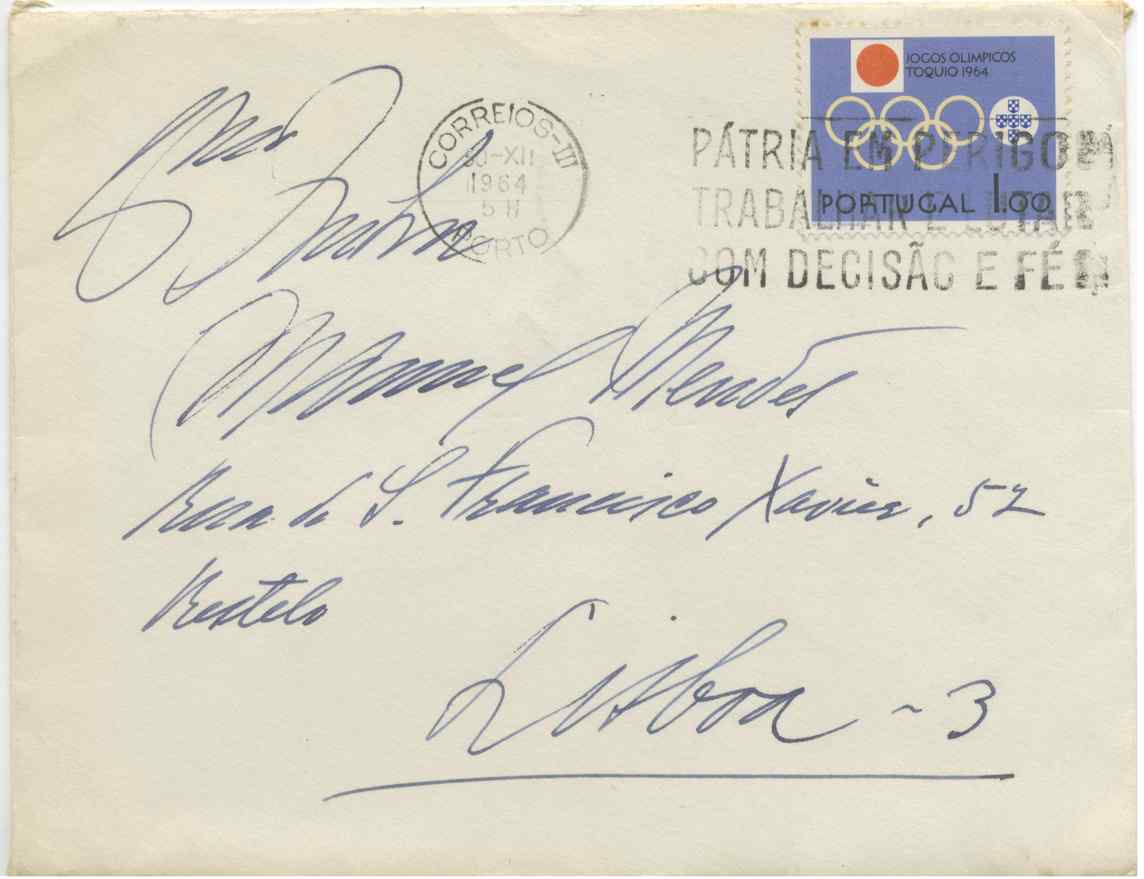 JOGOS OLIMPICOS
TOQUIO 1964
PORTUGAL 1.00
CORREIOS-III
30-XII
1964
PORTO
PÁTRIA EM PERIGO
TRABALHAR E LUTAR
COM DECISÃO E FÉ
Manuel Mendes
Rua de S. Francisco Xavier, 52
Restelo
Lisboa - 3